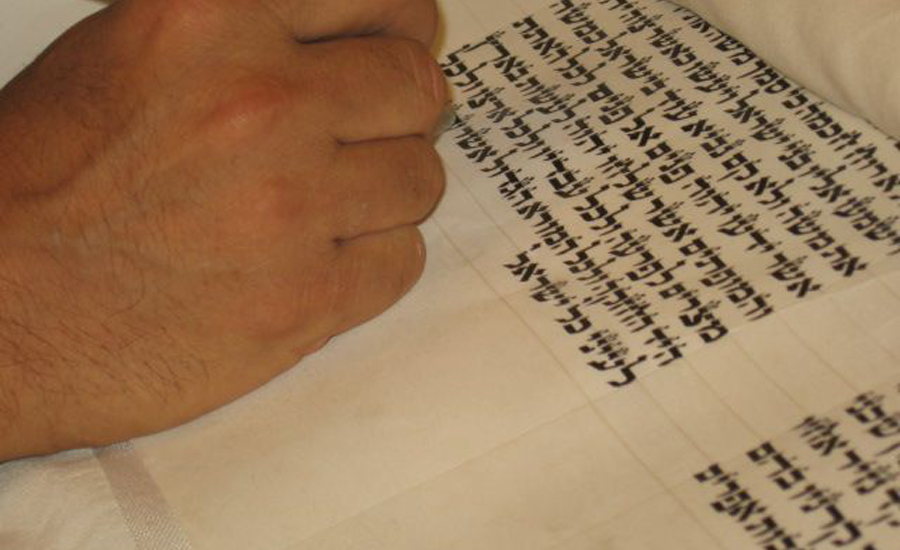 חכמה כי סמך משה את
וישמעו אליו בני ישראל ויעשו כאשר צוה יהוה
את משה ולא קם נביא עוד בישראל כמשה
אשר ידעו יהוה פנים אל פנים לכל האתת
והמופתים אשר שלחו יהוה לעשות בארץ
מצרים לפרעה ולכל עבדיו ולכל ארצו ולכל
היד החזקה ולכל המורא הגדול אשר
לעיני כל ישראל